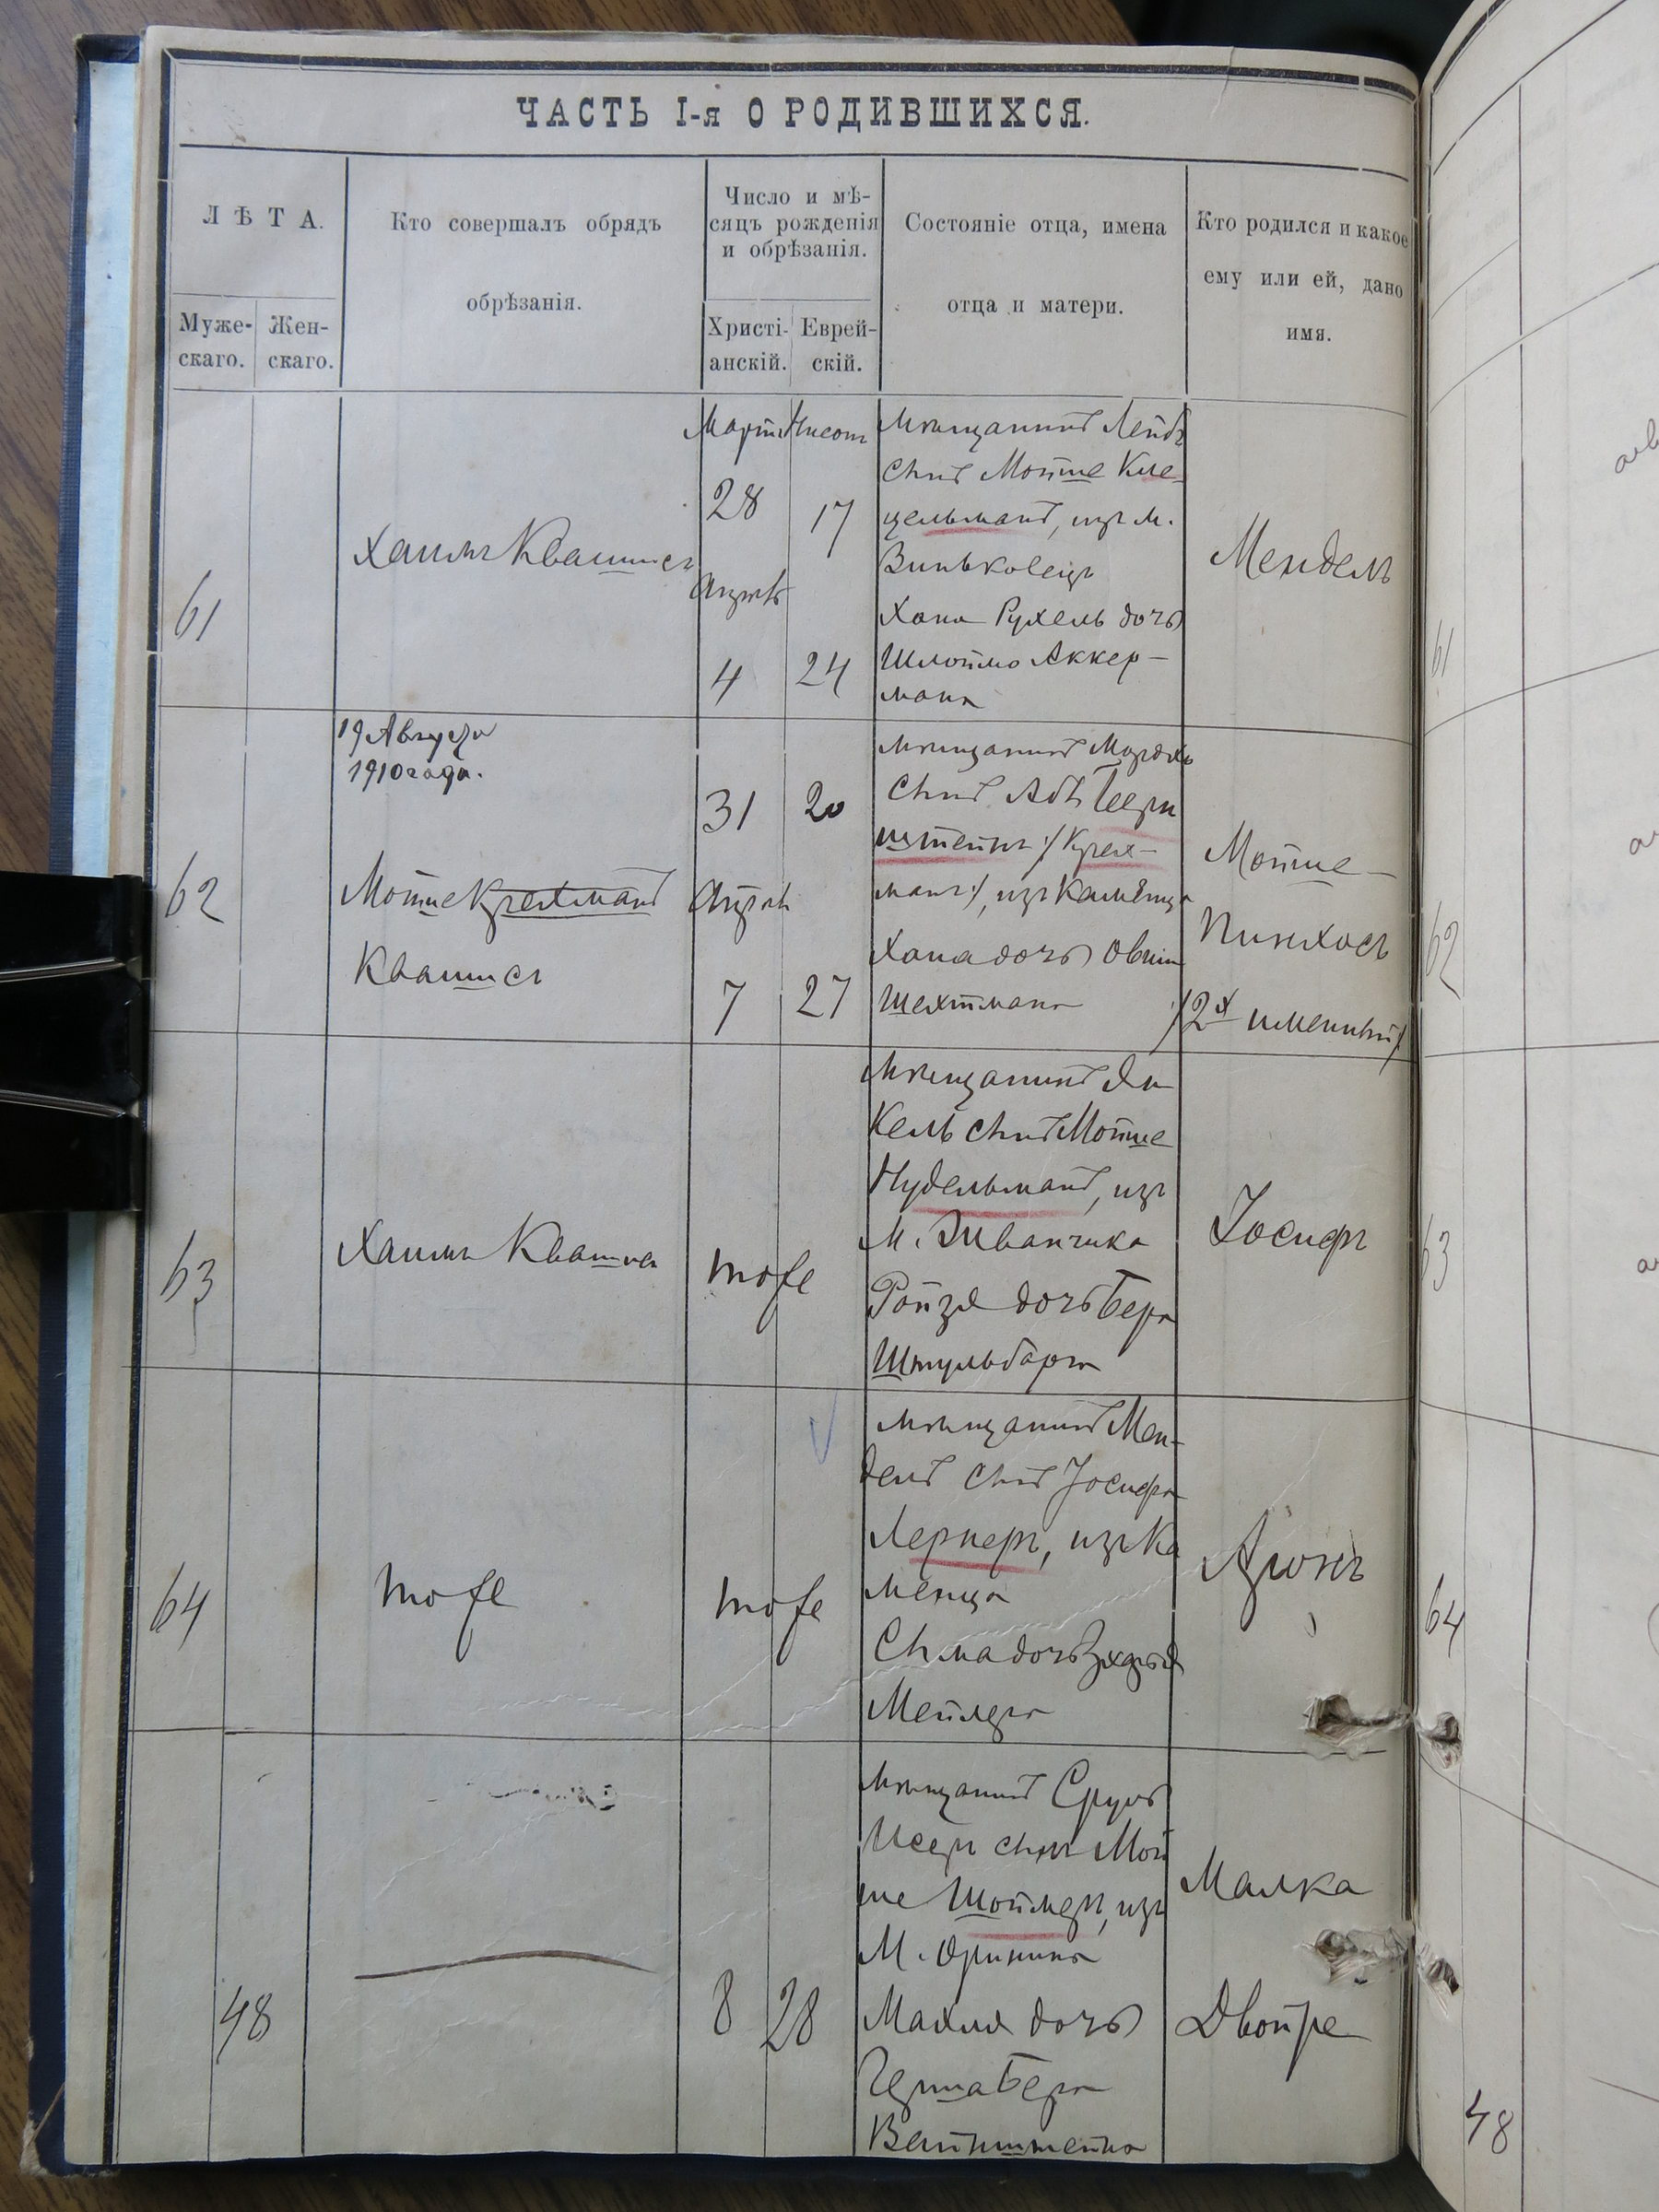 ЧАСТЬ I-я О РОДИВШИХСЯ.
ЛѢТА.
Муже-
скаго.
Жен-
скаго.
Кто совершалъ обрядъ
обрѣзанія.
Число и мѣ-
сяцъ рожденія
и обрѣзанія.
Христі-
анскій.
Еврей-
скій.
Состояніе отца, имена
отца и матери.
Кто родился и какое
ему или ей, дано
имя.
61
Хаимъ Квашисъ
Мартъ Нисонъ
28 17
Апрѣль
4 24
мѣщанинъ Лейбъ
сынъ Мойше Кле-
цельманъ, изъ м.
Виньковецъ
Хана Рухель дочь
Шлоймо Аккер-
мана
Мендель
62
19 Августа
1910 года.
Мойше Крехманъ
Квашисъ
31 20
Апрѣль
7 27
мѣщанинъ Мордхъ
сынъ Абъ Бери
штейнъ /Крех-
манъ/, изъ Каменца
Хана дочь Овши
Шехтмана
Мойше-
Пинхосъ
/2х именный/
63
Хаимъ Квашисъ
тоже
мѣщанинъ Ян-
кель сынъ Мойше
Нудельманъ, изъ
м. Жванчика
Ройзя дочь Бера
Штульбарга
Іосифъ
64
тоже
тоже
мѣщанинъ Мен-
дель сынъ Іосифа
Лернеръ, изъ Ка
менца
Сыма дочь
Мейлера
Аронъ
48
8 28
мѣщанинъ Сруль
Исеръ сынъ Мой
ше Шоймеръ, изъ
м. Оринина
Махля дочь
Герша Бера
Вайнштейна
Малка
Двойре
61
62
63
64
48